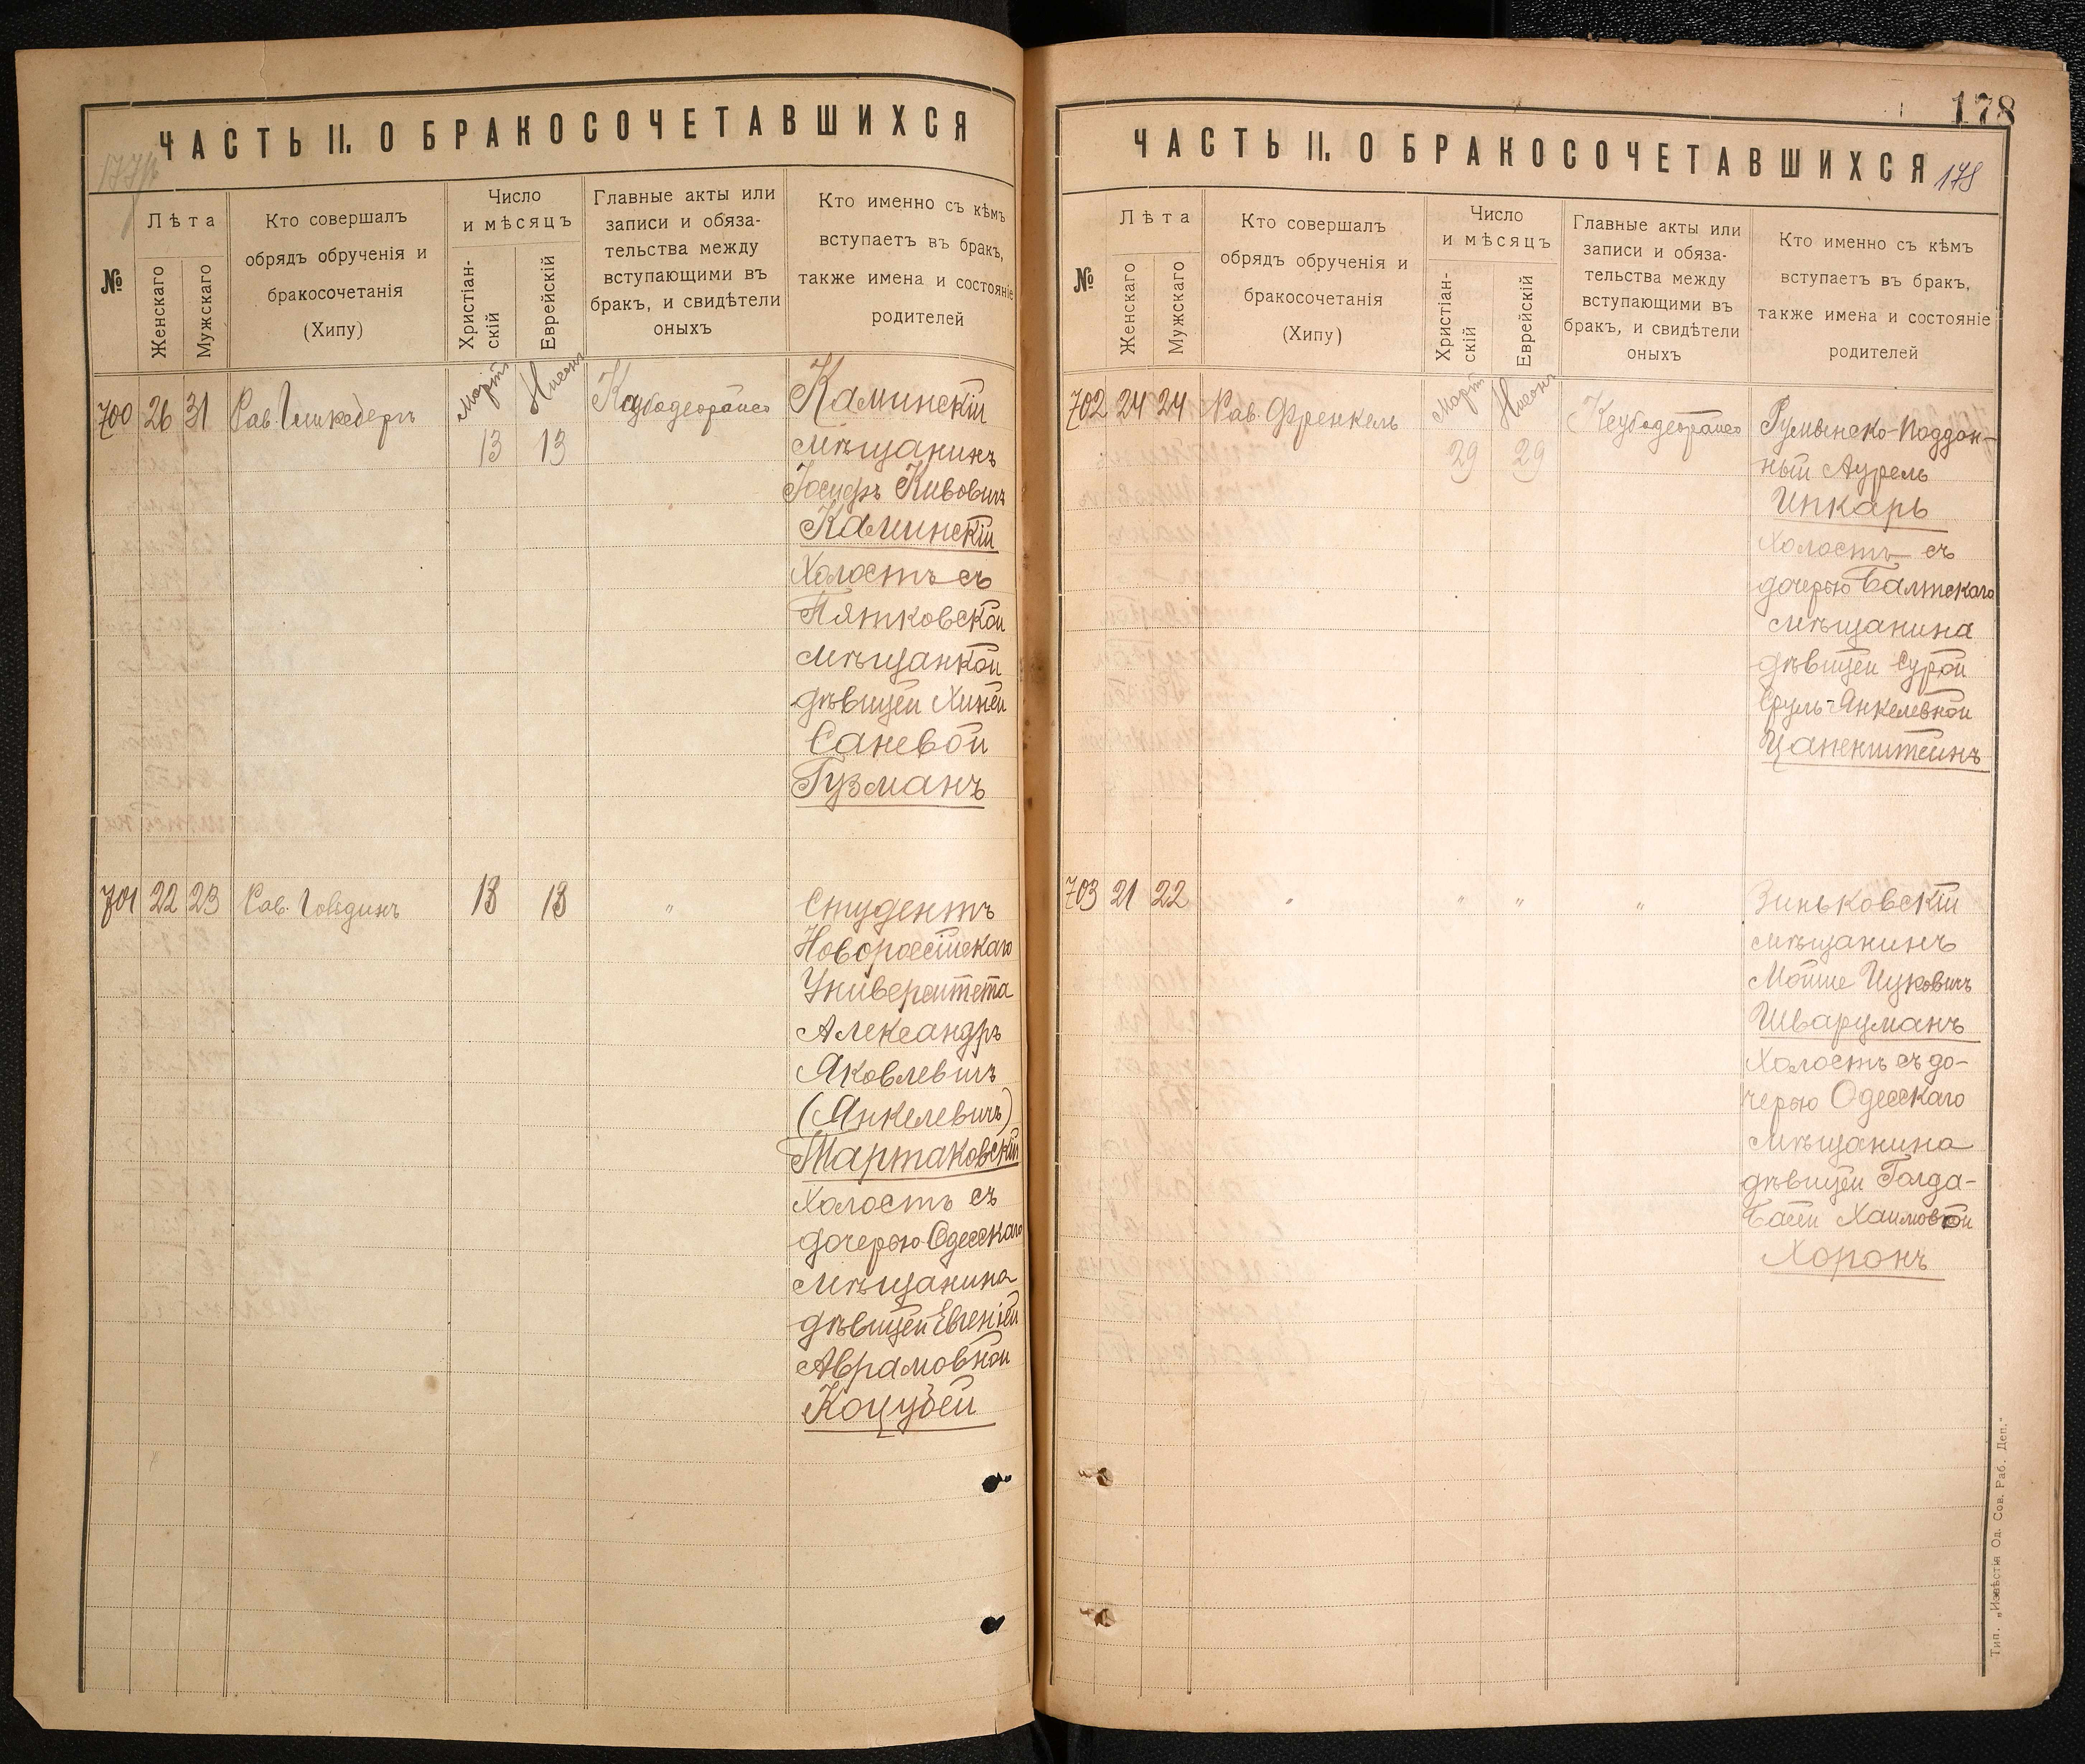 ЧАСТЬ II. О БРАКОСОЧЕТАВШИХСЯ
№
Лѣта
Женскаго
Мужскаго
Кто совершалъ
обрядъ обрученія и
бракосочетанія
(Хипу)
Число
и мѣсяцъ
Христіан-
скій
Еврейскій
Главные акты или
записи и обяза-
тельства между
вступающими въ
бракъ, и свидѣтели
оныхъ
Кто именно съ кѣмъ
вступаетъ въ бракъ,
также имена и состояніе
родителей
700 26 31 Рав.
Март Нисон
13 13
Каминскій
мѣщанинъ
Іосифъ Кивовичъ
Каминскій
Холостъ съ
Пятковской
мѣщанкой
дѣвицей Хиней
Саневой
Гузманъ
701 22 23 Рав. 13 13 "
Студентъ
Новороссійскаго
Университета
Александръ
Яковлевичъ
(Янкелевичъ)
Тартаковскій
Холостъ съ
дочерью Одесскаго
мѣщанина
дѣвицей Евгеніей
Аврамовной
Коцубей
178
ЧАСТЬ II. О БРАКОСОЧЕТАВШИХСЯ
178
№
Лѣта
Женскаго
Мужскаго
Кто совершалъ
обрядъ обрученія и
бракосочетанія
(Хипу)
Число
и мѣсяцъ
Христіан-
скій
Еврейскій
Главные акты или
записи и обяза-
тельства между
вступающими въ
бракъ, и свидѣтели
оныхъ
Кто именно съ кѣмъ
вступаетъ въ бракъ,
также имена и состояніе
родителей
702 24 24 Рав. Френкель
Март Нисон
29 29
Румынско-поддан-
ный Аурель
Инкаръ
Холостъ съ
дочерью Балтскаго
мѣщанина
дѣвицей Сурой
Сруль-Янкелевной
Цаненштейнъ
703 21 22 " " " "
Зиньковскій
мѣщанинъ
Мойше Ицковичъ
Шварцманъ
Холостъ съ до-
черью Одесскаго
мѣщанина
дѣвицей Голда-
Басей Хаимовной
Хоронъ
Тип. „Извѣстія Од. Сов. Раб. Деп."